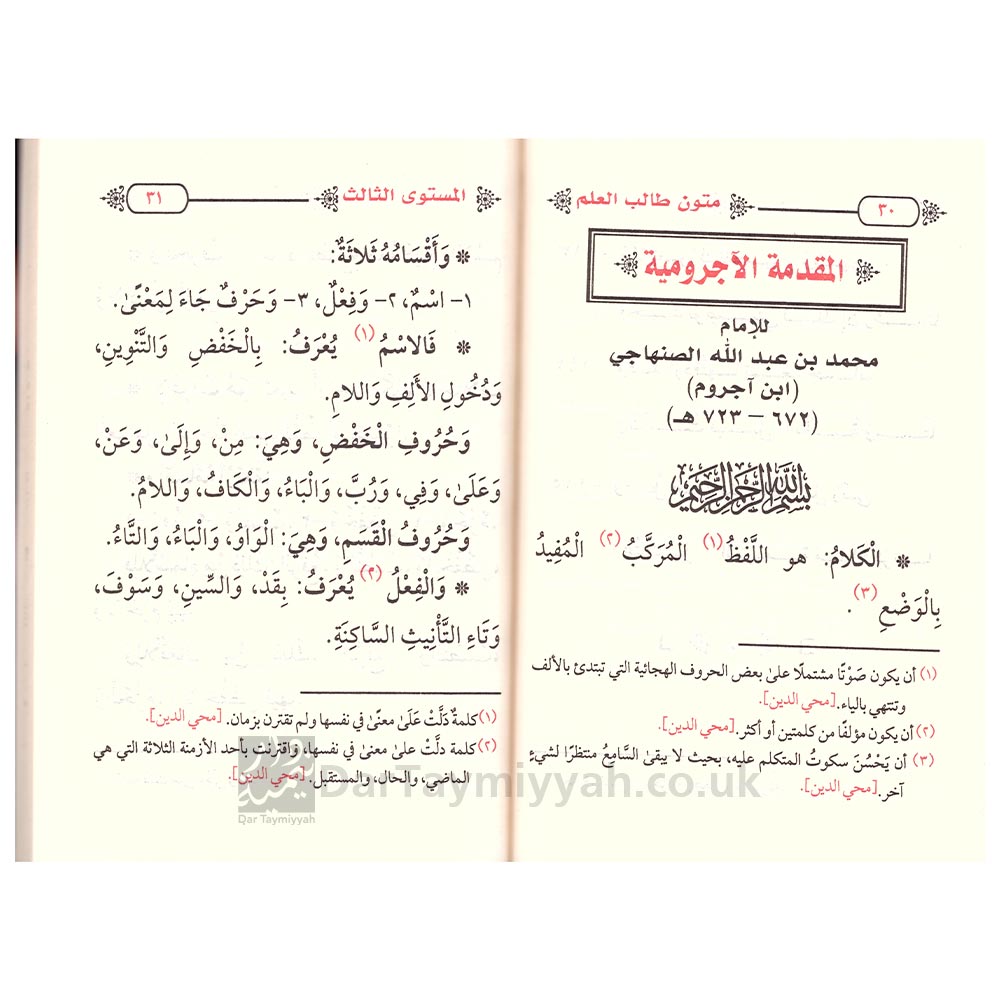 متون طالب العلم ٣٠
المقدمة الآجرومية
للإمام
محمد بن عبد الله الصنهاجي
(ابن آجروم)
(٦٧٢ – ٧٢٣ هـ)
بسم الله الرحمن الرحيم
* الْكَلامُ: هو اللَّفْظُ(١) الْمُرَكَّبُ(٢) الْمُفِيدُ
بِالْوَضْعِ(٣).
(١) أن يكون صَوْتًا مشتملًا علىٰ بعض الحروف الهجائية التي تبتدئ بالألف
وتنتهي بالياء. [محي الدين].
(٢) أن يكون مؤلفًا من كلمتين أو أكثر. [محي الدين].
(٣) أن يَحْسُنَ سكوتُ المتكلم عليه، بحيث لا يبقىٰ السَّامِعُ منتظرًا لشيءٍ
آخر. [محي الدين].
المستوى الثالث ٣١
* وَأَقْسَامُهُ ثَلاثَةٌ:
١- اسْمٌ، ٢- وَفِعْلٌ، ٣- وَحَرْفٌ جَاءَ لِمَعْنًىٰ.
* فَالاسْمُ(١) يُعْرَفُ: بِالْخَفْضِ وَالتَّنْوِينِ،
وَدُخُولِ الأَلِفِ وَاللامِ.
وَحُرُوفِ الْخَفْضِ، وَهِيَ: مِنْ، وَإِلَىٰ، وَعَنْ،
وَعَلَىٰ، وَفِي، وَرُبَّ، وَالْبَاءُ، وَالْكَافُ، وَاللامُ.
وَحُرُوفُ الْقَسَمِ، وَهِيَ: الْوَاوُ، وَالْبَاءُ، وَالتَّاءُ.
* وَالْفِعْلُ(٢) يُعْرَفُ: بِقَدْ، وَالسِّينِ، وَسَوْفَ،
وَتَاءِ التَّأْنِيثِ السَّاكِنَةِ.
(١) كلمةٌ دَلَّتْ عَلَىٰ معنىٰ في نفسها ولم تقترن بزمان. [محي الدين].
(٢) كلمة دلَّتْ علىٰ معنىٰ في نفسها، واقترنت بأحد الأزمنة الثلاثة التي هي
الماضي، والحال، والمستقبل. [محي الدين].
DarTaymiyyah.co.uk
Dar Taymiyyah